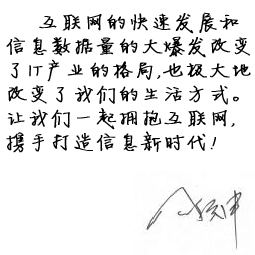 互联网的快速发展和
信息数据量的大爆发改变
了IT产业的格局,也极大地
改变了我们的生活方式。
让我们一起拥抱互联网,
携手打造信息新时代!